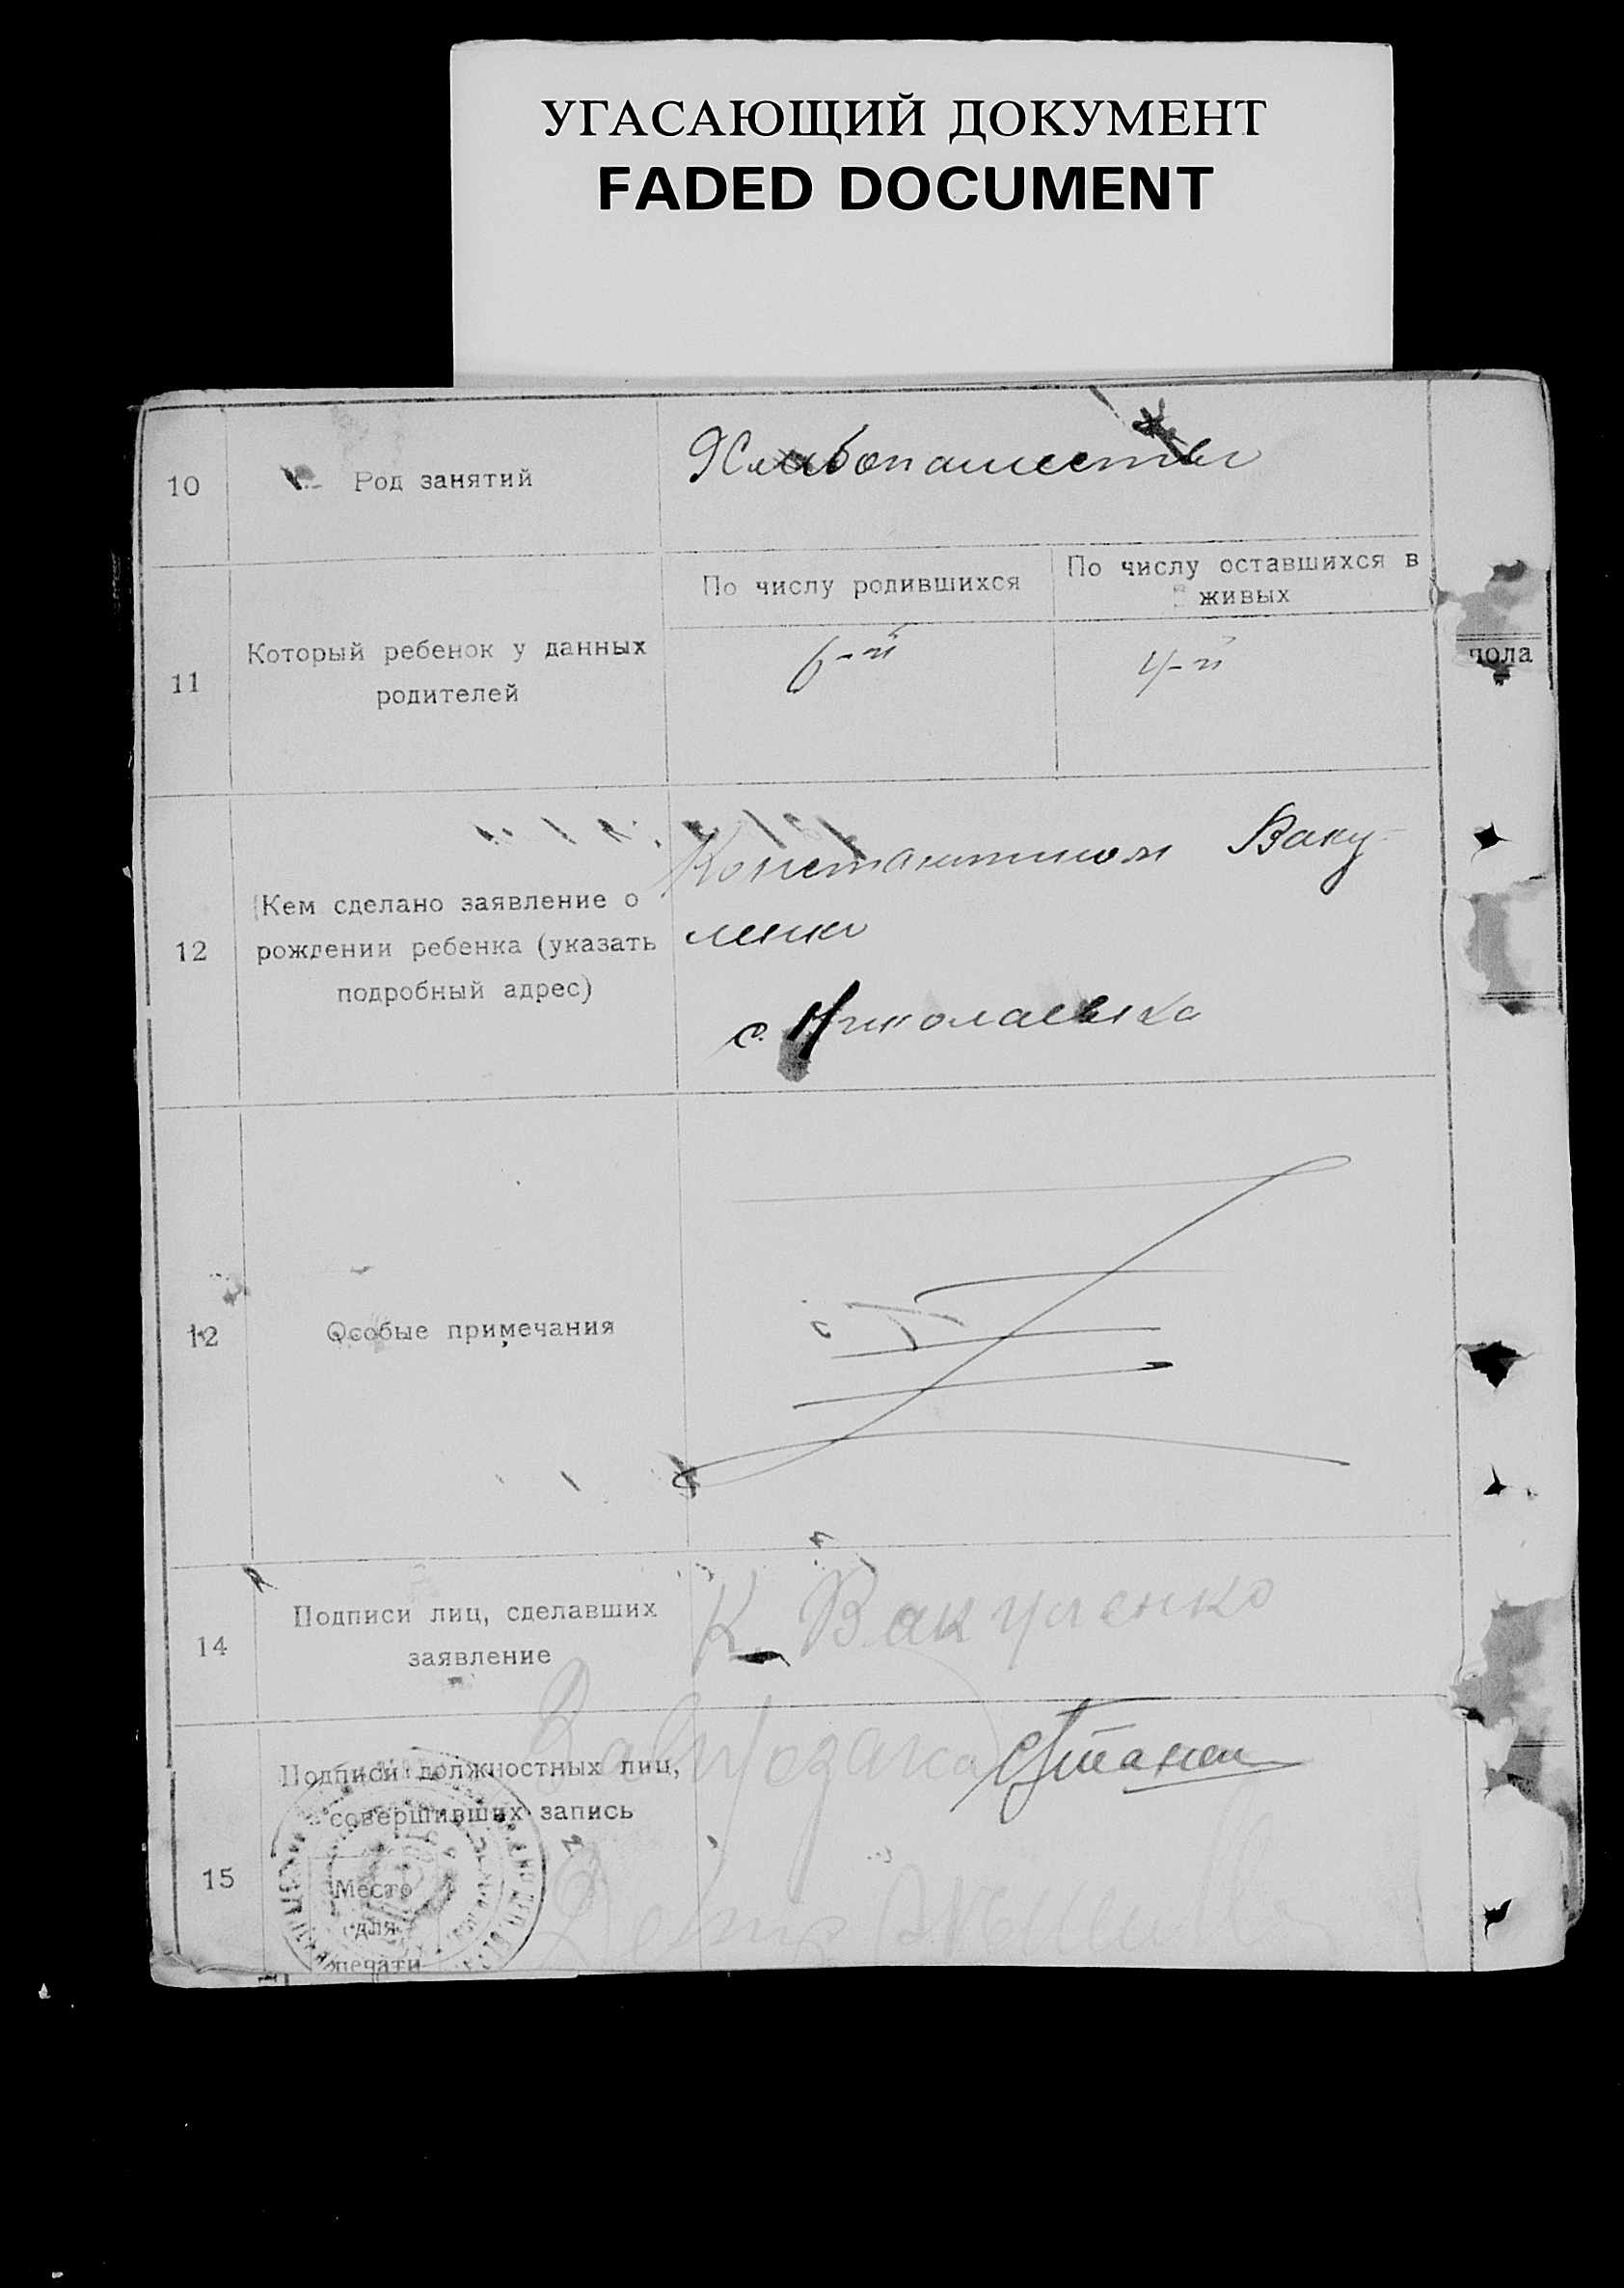 УГАСАЮЩИЙ ДОКУМЕНТ
FADED DOCUMENT
10
Род занятий
Хлебопашеством
По числу родившихся
По числу оставшихся в
живых
11
Который ребенок у данных
родителей
6-й
4-й
пола
12
Кем сделано заявление о
рождении ребенка (указать
подробный адрес)
Константином Ваку-
ленко
с. Николаевка
12
Особые примечания
14
Подписи лиц, сделавших
заявление
К. Вакуленко
15
Подписи должностных лиц,
совершивших запись
Место
для
печати